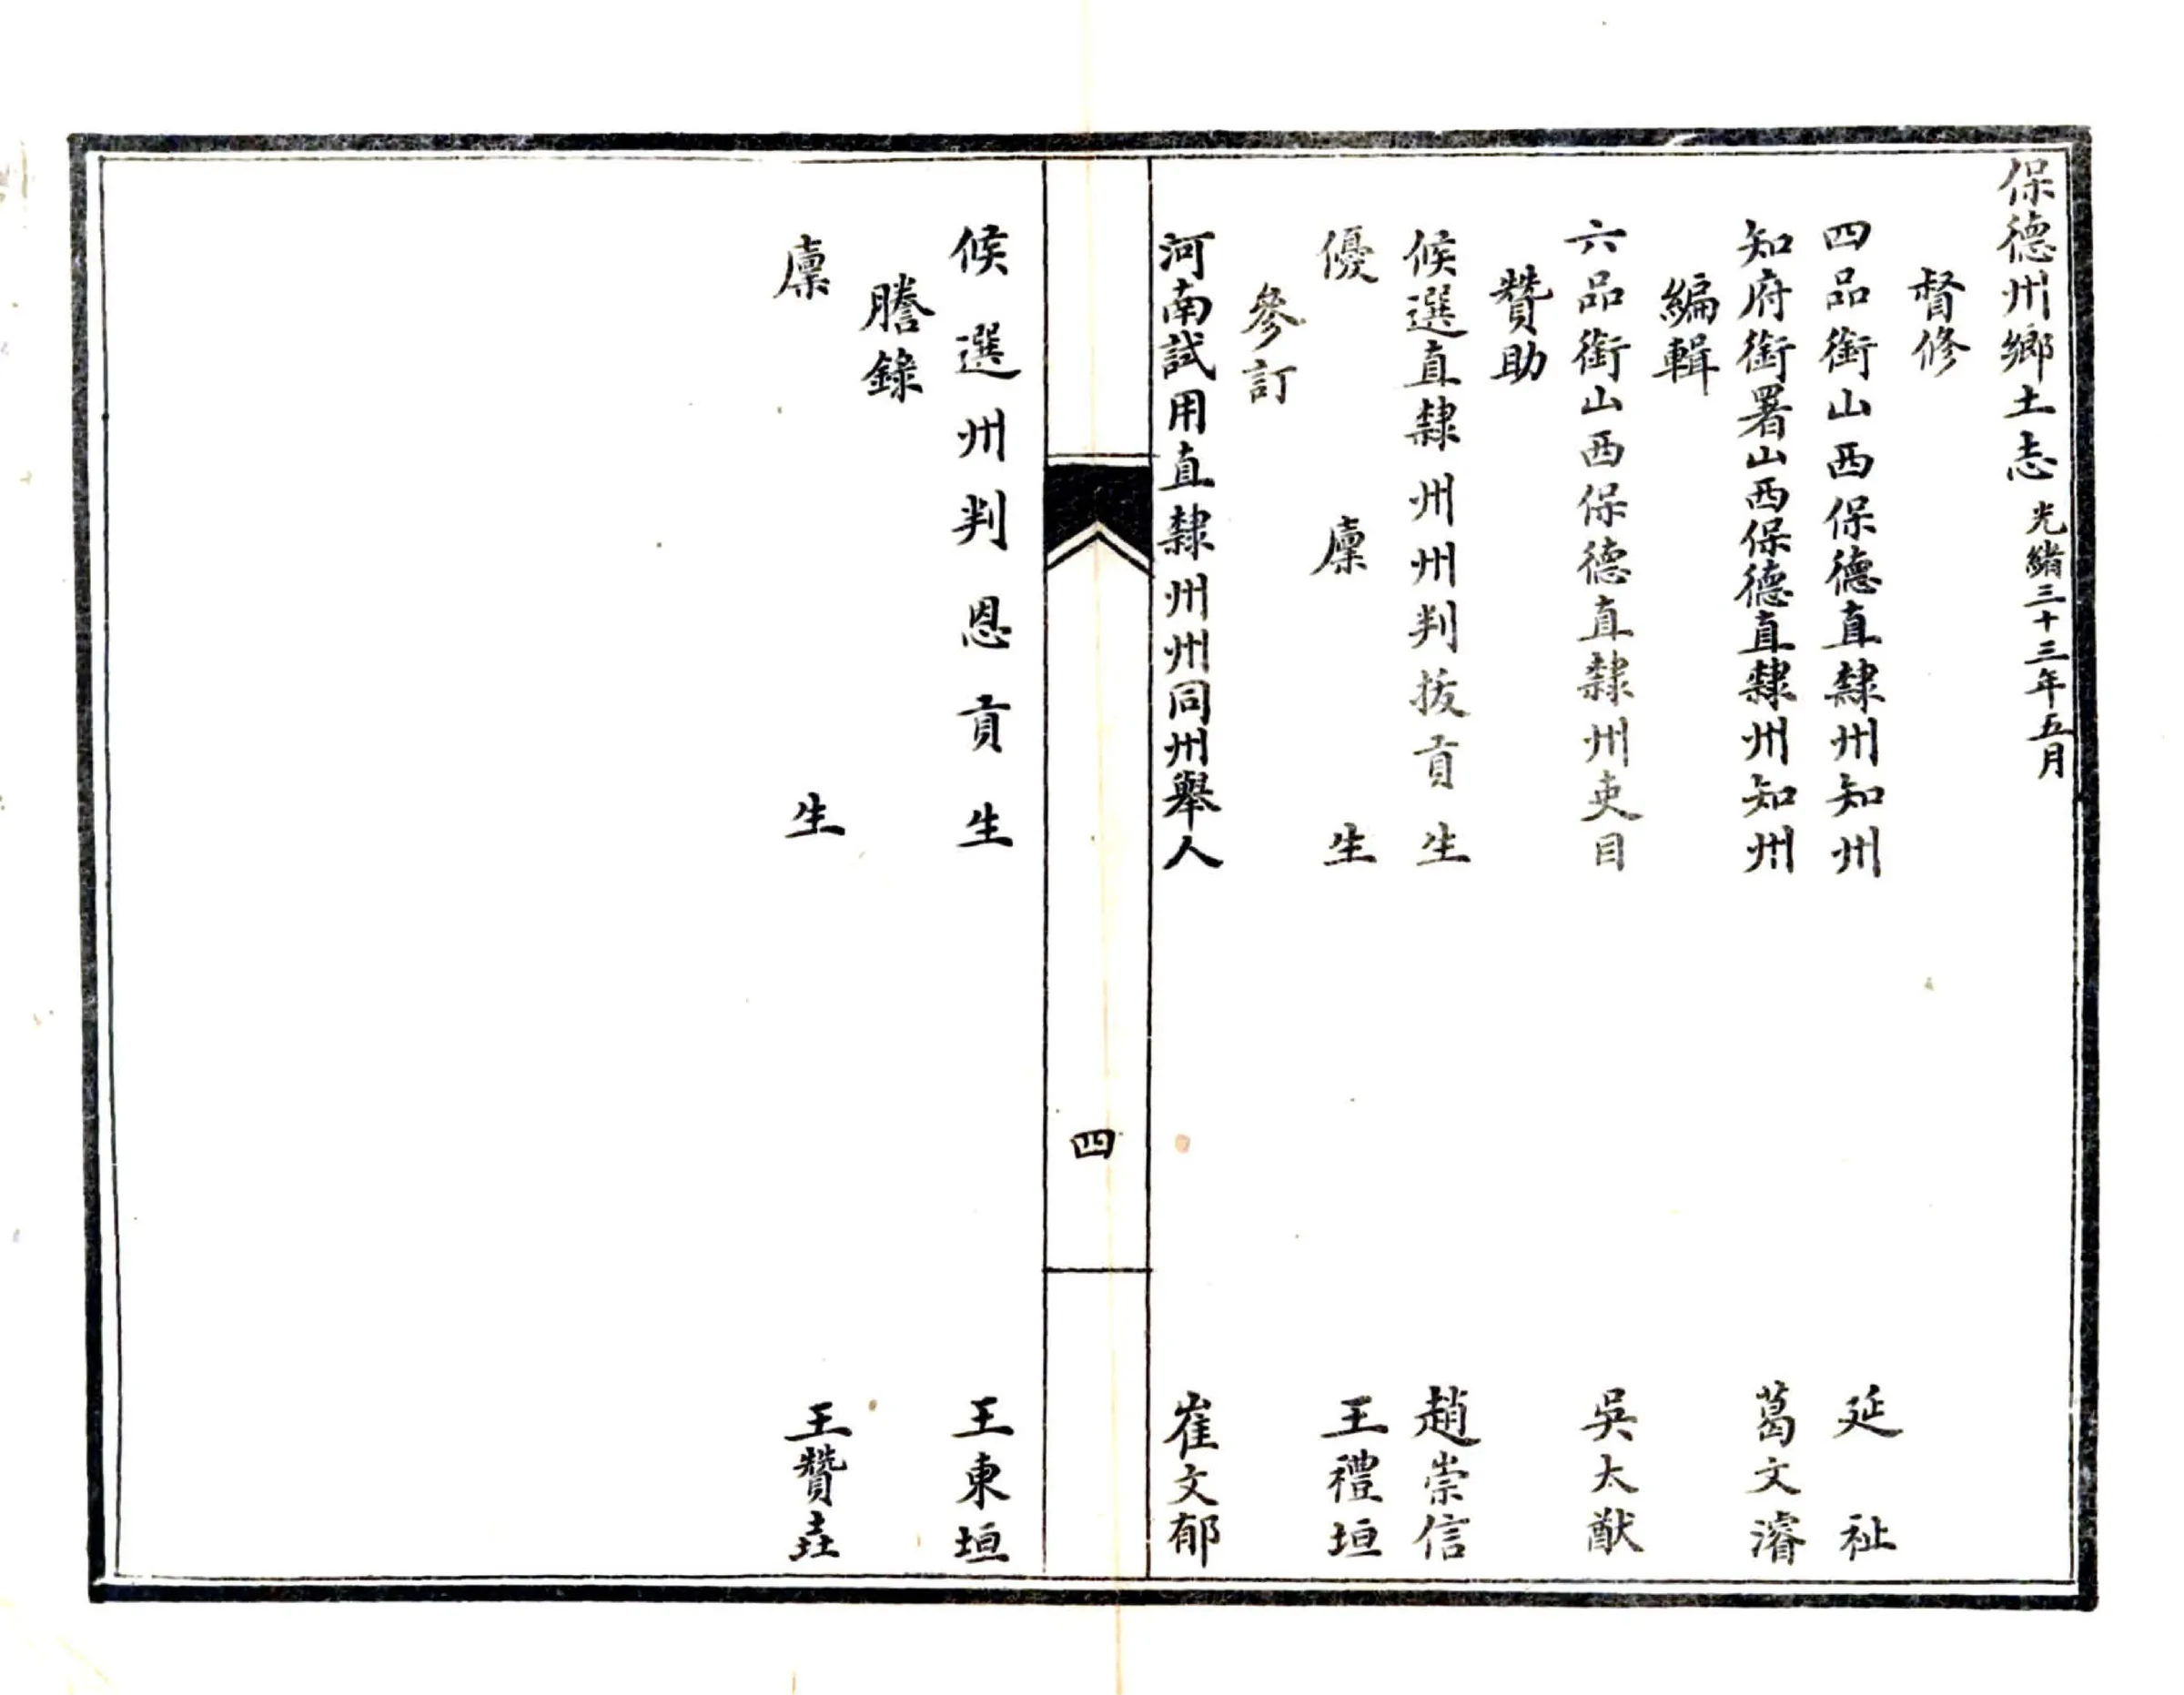 保德州鄉土志 光緒三十三年五月
督修
四品銜山西保德直隸州知州 延祉
知府銜署山西保德直隸州知州 葛文濬
編輯
六品銜山西保德直隸州吏目 吳太猷
贊助
候選直隸州州判拔貢生 趙崇信
優廩生 王禮垣
參訂
河南試用直隸州州同州舉人 崔文郁
四
候選州判恩貢生 王東垣
謄錄
廩生 王贊垚